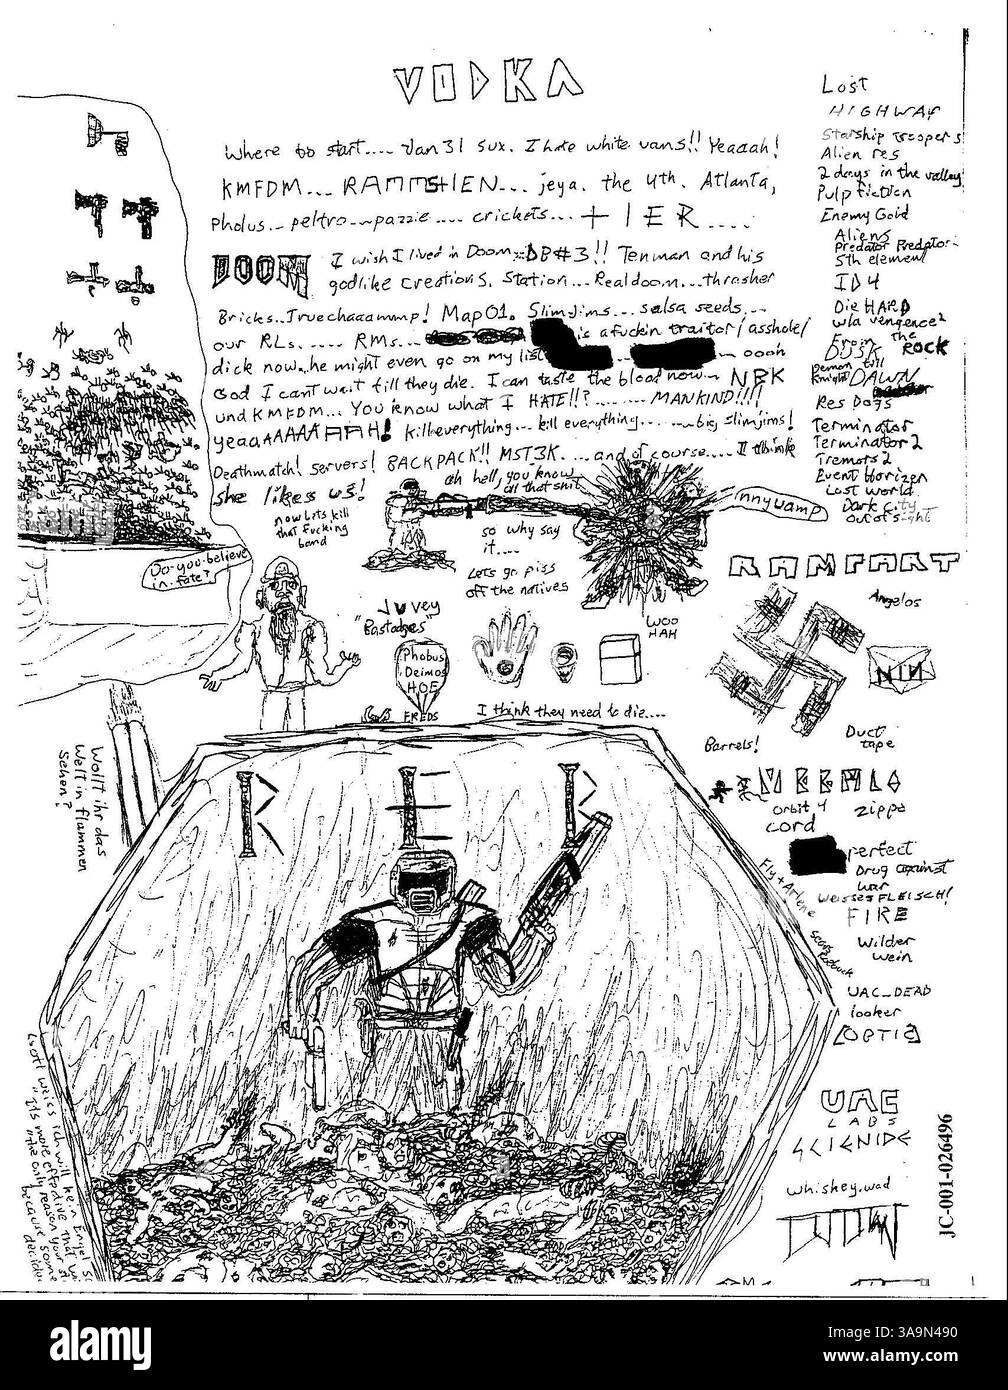 VODKA
Where to start.... Jan 31 sux. I hate white vans!! Yeaaah!
KMFDM... RAMMSTIEN... jeya. the 4th. Atlanta,
Pholus... peltro... pazzie.... crickets... TIER....
DOOM
I wish I lived in Doom... DB#3!! Tenman and his
godlike creations. Station... Realdoom... thrasher
Bricks.. Truechaaammp! Map01. Slimjims... salsa seeds...
our RLs..... RMs... is a fuckin traitor/asshole/
dick now..he might even go on my list ... oooh
God I cant wait till they die. I can taste the blood now... NBK
und KMFDM... You know what I HATE!!?....... MANKIND!!!!
yeaaAAAAAAHH! kill everything... kill everything....... big slimjims!
Deathmatch! servers! BACKPACK!! MST3K.... and of course.... I think
she likes us!
ah hell, you know
all that shit
now lets kill
that fucking
band
so why say
it....
Lets go piss
off the natives
innywamp
Do you believe
in fate?
Juvey
"Bastadges"
Phobus
Deimos
HOE
FREDS
WOO
HAH
I think they need to die....
Lost
HIGHWAY
Starship Troopers
Alien res
2 days in the valley
Pulp fiction
Enemy Gold
Aliens
Predator Predator
5th element
ID4
Die HARD
w/a vengence 2
From the ROCK
DUSK
Demon till
Knight DAWN
Res Dogs
Terminator
Terminator 2
Tremors 2
Event Horizen
Lost world
Dark city
out of sight
RAMFART
Angelos
NIN
Barrels!
Duct
tape
orbit 4
cord
Zippo
perfect
Drug against
war
Weisses FLEISCH!
Fly + Arlene
FIRE
Wilder
wein
UAC_DEAD
looker
OPTIC
UAC
LABS
SCIENIDE
whiskey.wad
Wollt ihr das
Welt in flammen
sehen?
Gott weis ich will kein Engel
its more effective that wa
the only reason your
because some
decided
JC-001-026496
alamy
alamy
Image ID: 3A9N490
www.alamy.com